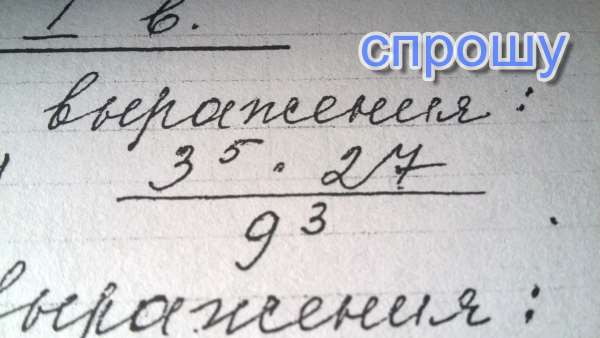 I в.
спрошу
выражения:
3⁵ · 27
9³
выражения: